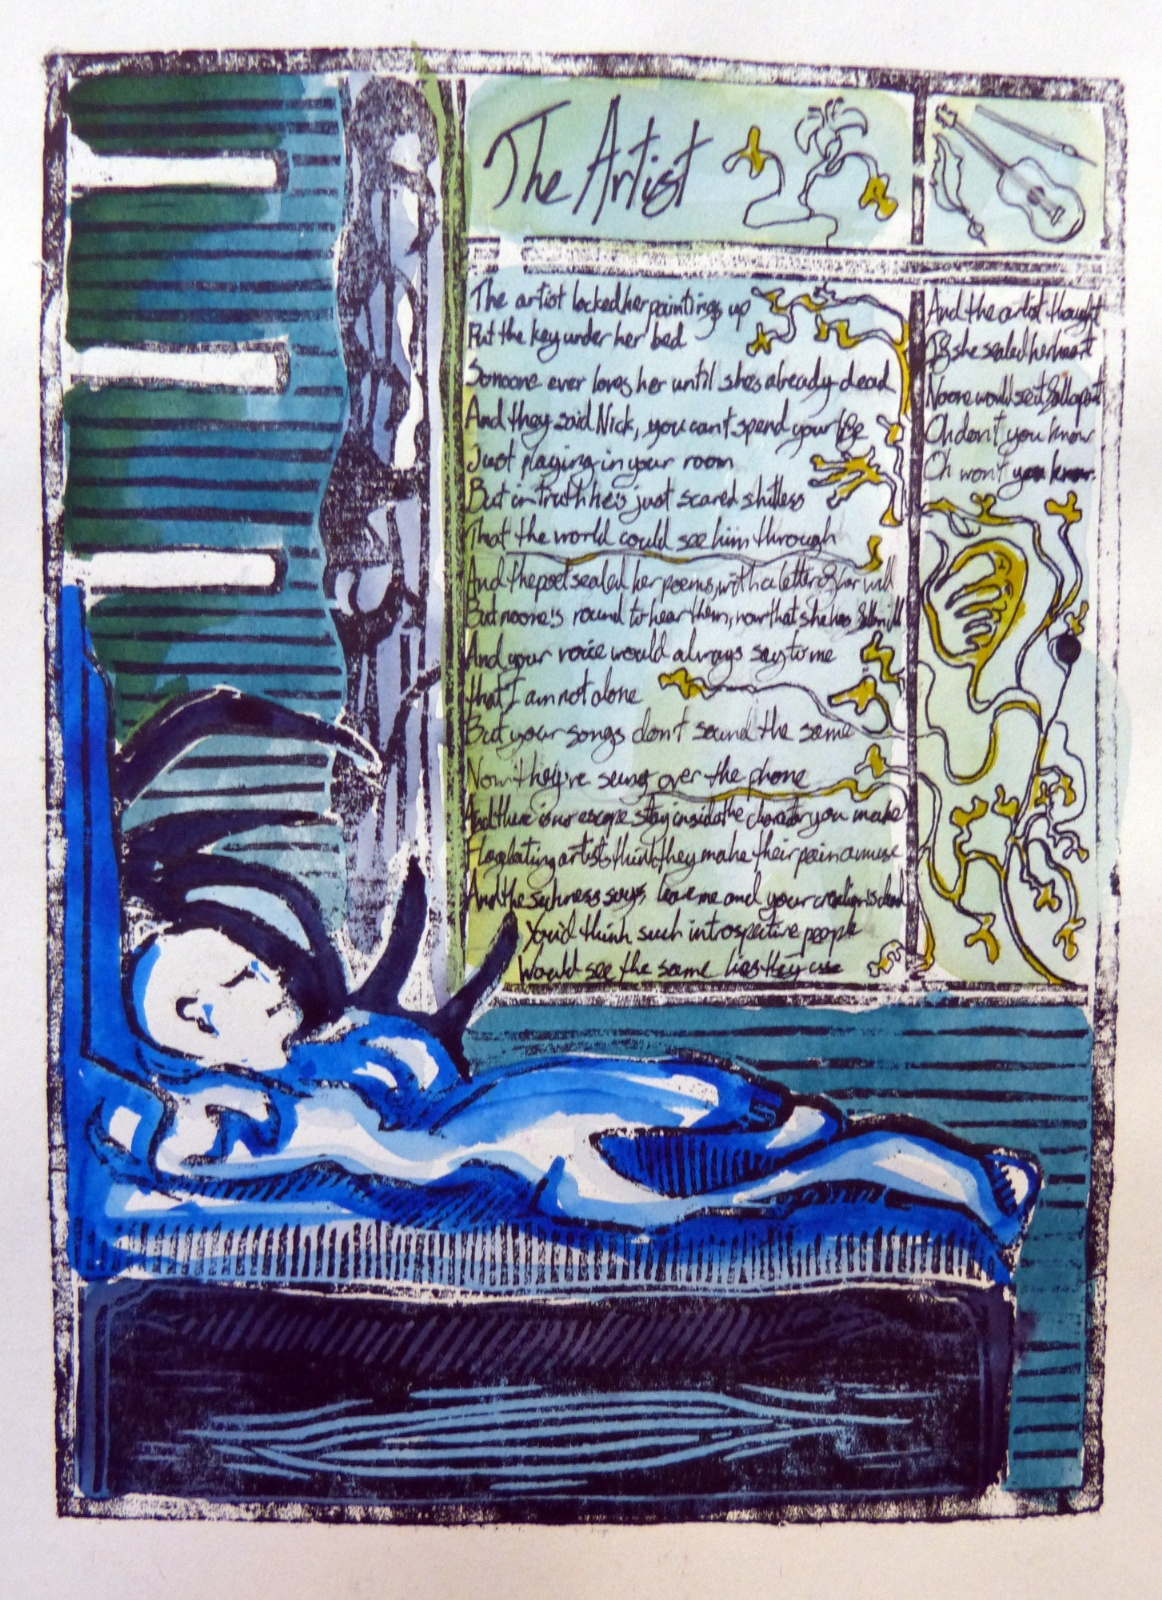 The Artist
The artist locked her paintings up
Put the key under her bed
So noone ever loves her until shes already dead
And they said Nick, you cant spend your life
Just playing in your room
But in truth he's just scared shitless
That the world could see him through
And the poet sealed her poems, with a letter of her will
But noone's round to hear them, now that she has fallen ill
And your voice would always say to me
that I am not alone
But your songs don't sound the same
Now they're sung over the phone
And there is no escape, stay inside the character you make
Flagelating artists think they make their pain amuse
And the sickness says, leave me and your creation is dead
You'd think such introspective people
Would see the same lies they use
And the artist thought
If she sealed her heart
No one would see it fall apart
Oh don't you know
Oh won't you know.